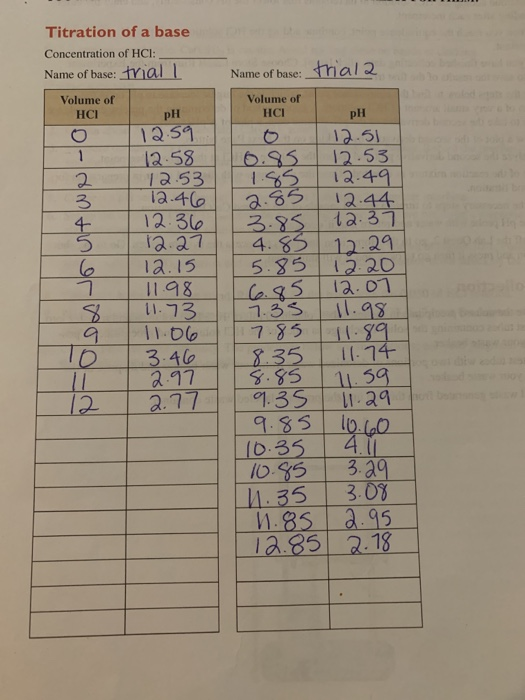 Titration of a base
Concentration of HCl:
Name of base: trial 1 Name of base: trial 2
Volume of HCl pH Volume of HCl pH
0 12.59 0 12.51
1 12.58 0.85 12.53
2 12.53 1.85 12.49
3 12.46 2.85 12.44
4 12.36 3.85 12.37
5 12.27 4.85 12.29
6 12.15 5.85 12.20
7 11.98 6.85 12.07
8 11.73 7.35 11.98
9 11.06 7.85 11.89
10 3.46 8.35 11.74
11 2.97 8.85 11.59
12 2.77 9.35 11.29
9.85 10.60
10.35 4.11
10.85 3.29
11.35 3.08
11.85 2.95
12.85 2.78